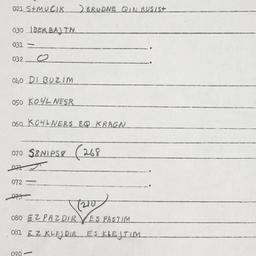 021 S+MUCIK ) BRUDNE QIN RUSIS+
030 IDERBAJTN
031 —
032
040 DI BUZIM
050 KO4LNESR
060 KO4LNERS EQ KRAGN
070 SBNIPS8 (268
071
072 —
073
(210)
080 EZ PAZDIR ES PASTIM
081 EZ KLEJDIR ES KLEJTIM
090 —